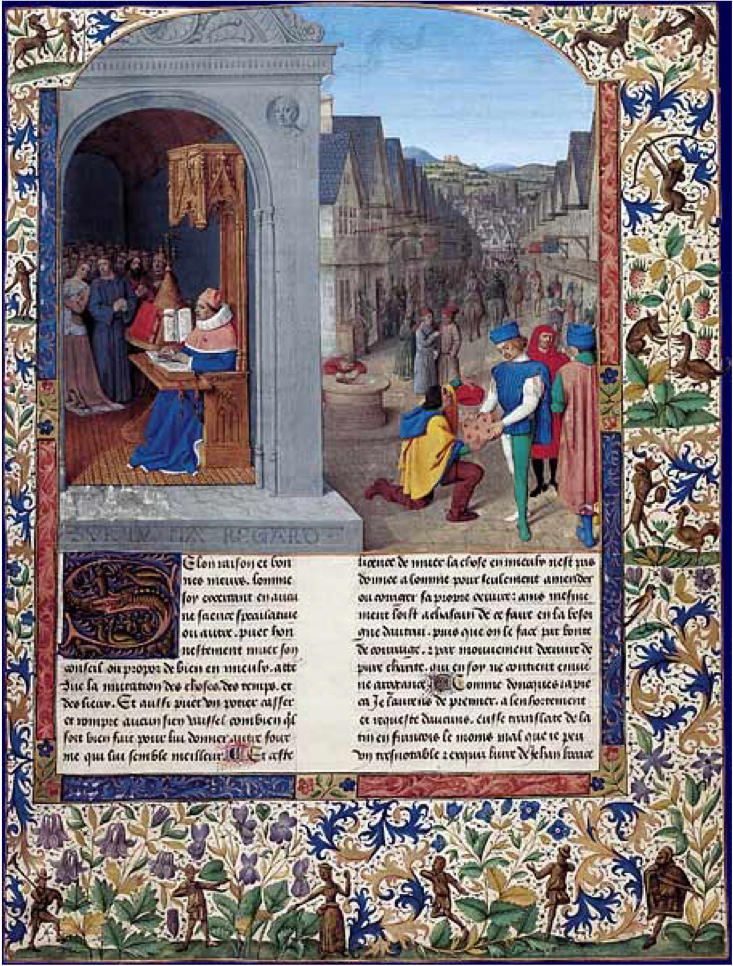 REGARD
Selon raison et bon
nes meurs. lomme
soy excercant en aucu
ne science speculatiue
ou autre. puet hon
nestement muer son
conseil ou propoz de bien en mieulx. atte
due la mutation des choses. des temps. et
des lieux. Et aussi puet vn potier casser
et rompre aucun sien vaissel combien ql
soit bien fait pour lui donner autre four
me qui lui semble meilleur Et ceste
licence de muer la chose en mieulx nest pas
donnee a lomme pour seulement amender
ou corriger sa propre oeuure: ains mesme
ment loist a chascun de ce faire en la beso
gne dautrui. puis que on le face par bonte
de couraige. & par mouuement de
pure charite. qui en soy ne contient enuie
ne arrogance Comme doncques ia pie
ca Je laurens de premier. a lenhortement
et requeste daucuns. eusse translate de la
tin en francois le moins mal que ie peu
vn tresnotable & exquiz liure de Jehan bocace